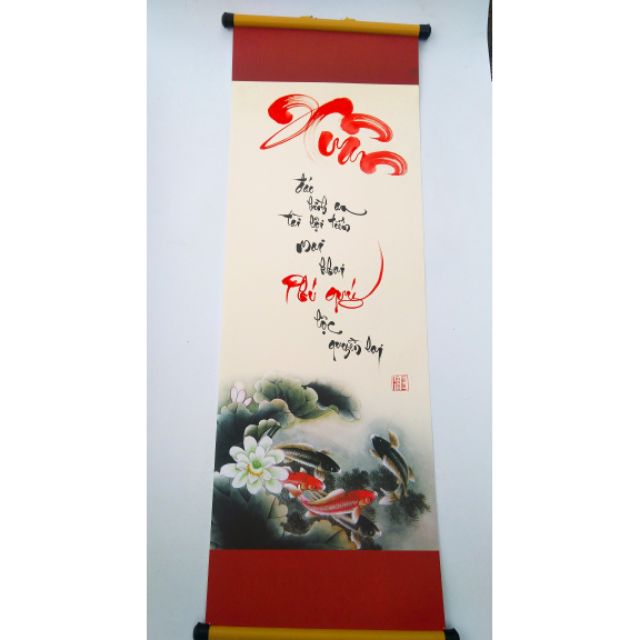 Xuân
đắc
bình an
tài lợi tiến
mai
khai
Phú quý
lộc
quyền lai